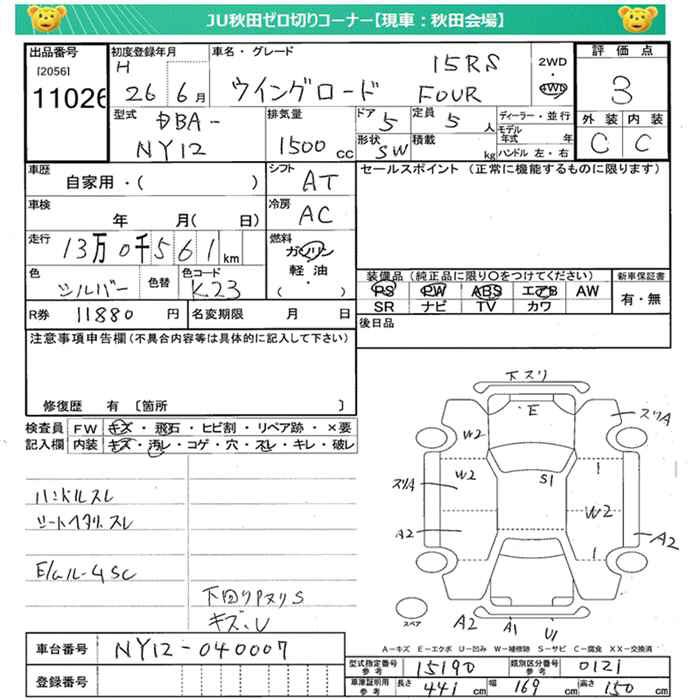 JU秋田ゼロ切りコーナー【現車：秋田会場】
出品番号
[2056]
11026
初度登録年月
H
26 6月
車名・グレード
ウイングロード
15RS
FOUR
2WD
・
4WD
評価点
3
外装 内装
C C
型式
DBA-
NY12
排気量
1500 cc
ドア
5
形状
SW
定員
5 人
積載
kg
ディーラー・並行
モデル年式 年
ハンドル 左・右
車歴
自家用・( )
シフト
AT
セールスポイント (正常に機能するものに限ります)
車検
年 月( 日)
冷房
AC
走行
13万0千561km
燃料
ガソリン
軽油
( ・ )
色
シルバー
色替
色コード
K23
装備品 (純正品に限り〇をつけてください)
PS PW ABS エアB AW
SR ナビ TV カワ
新車保証書
有・無
R券 11880 円
名変期限 月 日
後日品
注意事項申告欄(不具合内容等は具体的に記入して下さい)
修復歴 有 〔箇所 〕
検査員記入欄
FW キズ・飛石・ヒビ割・リペア跡・×要
内装 キズ・汚レ・コゲ・穴・スレ・キレ・破レ
ハンドルスレ
シートヘタリ、スレ
E/ムル-4SC
下回リPヌリS
キズ、U
下スリ
E
スリA
W2
W2
スリA
S1
W2
A2
A2
A2
A1
U1
スペア
A-キズ E-エクボ U-凹み W-補修跡 S-サビ C-腐食 XX-交換済
車台番号 NY12-040007
登録番号
型式指定番号 参考 15190
類別区分番号 参考 0121
車庫証明用 参考 長さ 441 cm 幅 169 cm 高さ 150 cm